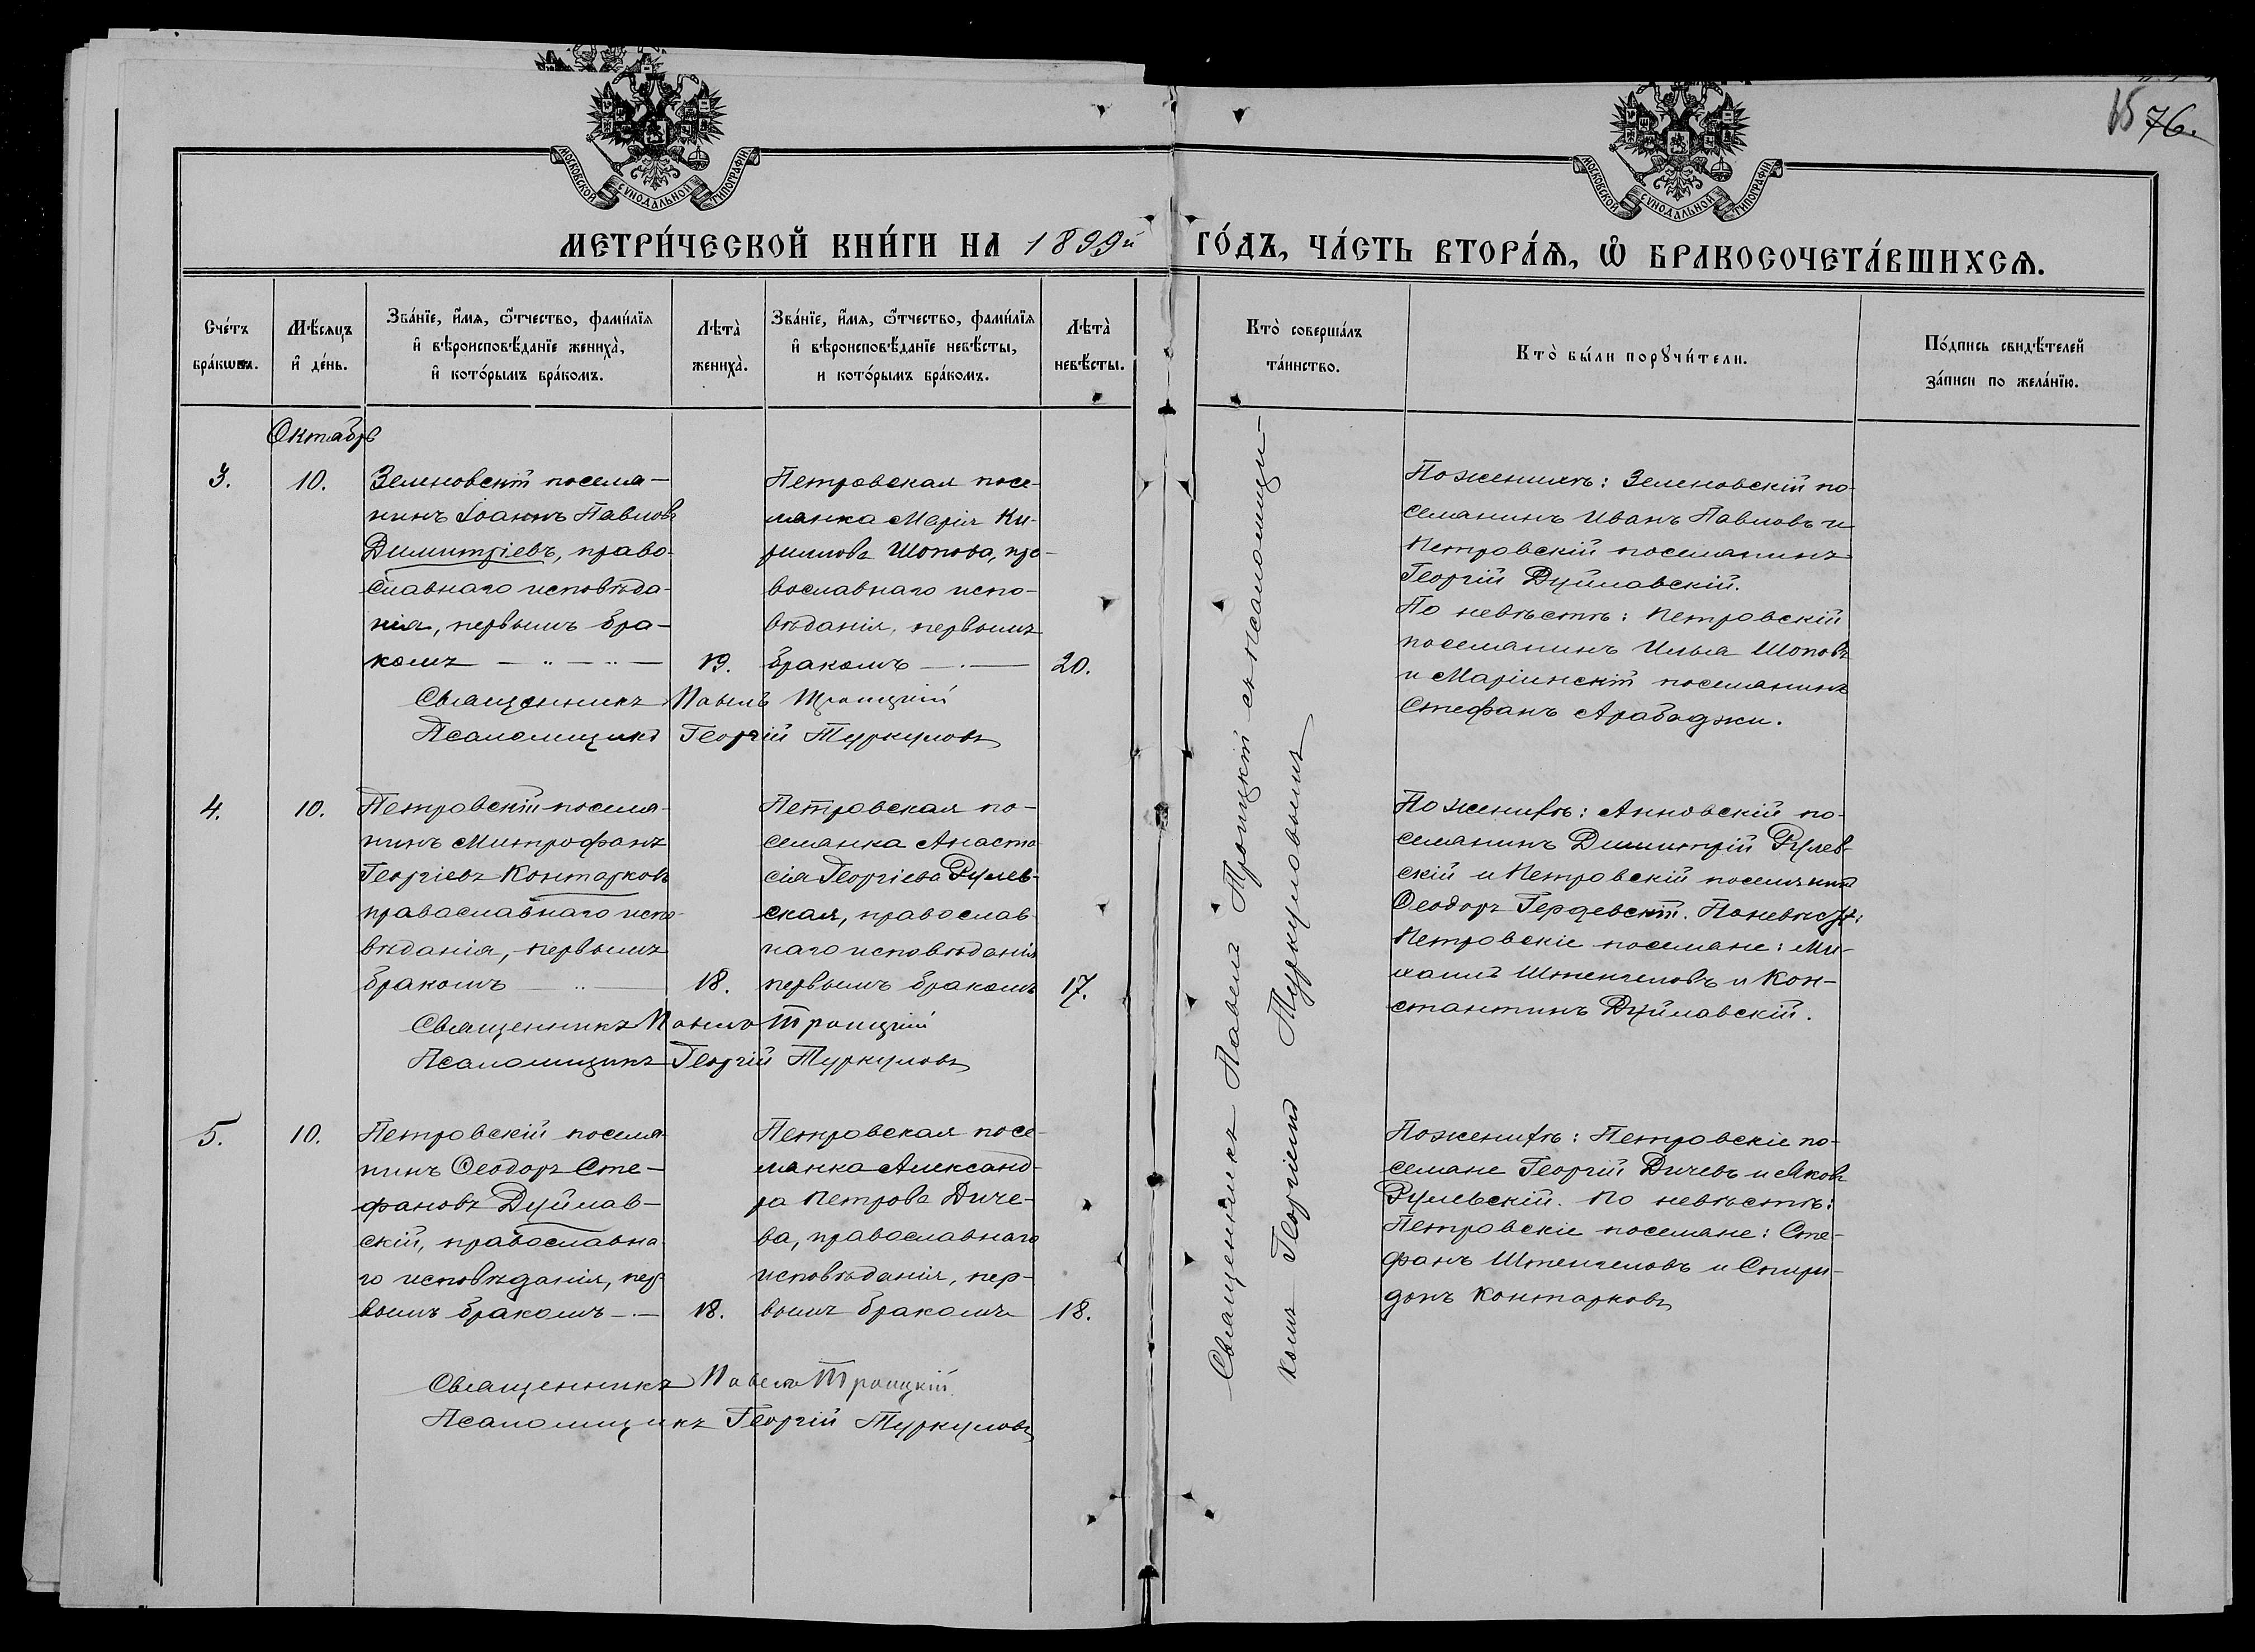 15 76.
МОСКОВСКОЙ СѴНОДАЛЬНОЙ ТИПОГРАФІИ
МОСКОВСКОЙ СѴНОДАЛЬНОЙ ТИПОГРАФІИ
МЕТРИ́ЧЕСКОЙ КНИ́ГИ НА 1899й ГО́ДЪ, ЧА́СТЬ ВТОРА́Ѧ, Ѽ БРАКОСОЧЕТА́ВШИХСѦ.
Сче́тъ
бра́кωвъ.
Мѣ́сяцъ
и҆ де́нь.
Зва́нїе, и҆́мя, ѻ҆́тчество, фами́лїя
и҆ вѣроисповѣ́данїе жениха̀,
и҆ кото́рымъ бра́комъ.
Лѣта̀
жениха̀.
Зва́нїе, и҆́мя, ѻ҆́тчество, фами́лїя
и҆ вѣроисповѣ́данїе невѣ́сты,
и кото́рымъ бра́комъ.
Лѣта̀
невѣ́сты.
Кто̀ соверша́лъ
та́инство.
Кто̀ бы́ли порꙋчи́тели.
По́дпись свидѣ́телей
за́писи по жела́нїю.
Октябрь
3.
10.
Зеленовскій поселя-
нинъ Іоаннъ Павловъ
Димитріевъ, право-
славнаго исповѣда-
нія, первымъ бра-
комъ
19.
Петровская посе-
лянка Марія Ки-
риллова Шопова, пра-
вославнаго испо-
вѣданія, первымъ
бракомъ
20.
Священникъ Павелъ Троицкій
Псаломщикъ Георгій Туркуловъ
По женихѣ: Зеленовскій по-
селянинъ Иванъ Павловъ и
Петровскій поселянинъ
Георгій Дуйлавскій.
По невѣстѣ: Петровскій
поселянинъ Илья Шоповъ
и Маріинскій поселянинъ
Стефанъ Арабаджи.
4.
10.
Петровскій поселя-
нинъ Митрофанъ
Георгіевъ Контарковъ
православнаго испо-
вѣданія, первымъ
бракомъ
18.
Петровская по-
селянка Анаста-
сія Георгіева Рулев-
ская, православ-
наго исповѣданія
первымъ бракомъ
17.
Священникъ Павелъ Троицкій
Псаломщикъ Георгій Туркуловъ
По женихѣ: Анновскій по-
селянинъ Димитрій Рулев-
скій и Петровскій поселянинъ
Ѳеодоръ Гердевскій. По невѣстѣ:
Петровскіе поселяне: Ми-
хаилъ Штенгеловъ и Кон-
стантинъ Дуйлавскій.
5.
10.
Петровскій поселя-
нинъ Ѳеодоръ Сте-
фановъ Дуйлав-
скій, православна-
го исповѣданія, пер-
вымъ бракомъ
18.
Петровская посе-
лянка Александ-
ра Петрова Диче-
ва, православнаго
исповѣданія, пер-
вымъ бракомъ
18.
Священникъ Павелъ Троицкій
Псаломщикъ Георгій Туркуловъ
По женихѣ: Петровскіе по-
селяне Георгій Дичевъ и Яковъ
Рулевскій. По невѣстѣ:
Петровскіе поселяне: Сте-
фанъ Штенгеловъ и Спири-
донъ Контарковъ
Священникъ Павелъ Троицкій съ псаломщи-
комъ Георгіемъ Туркуловымъ